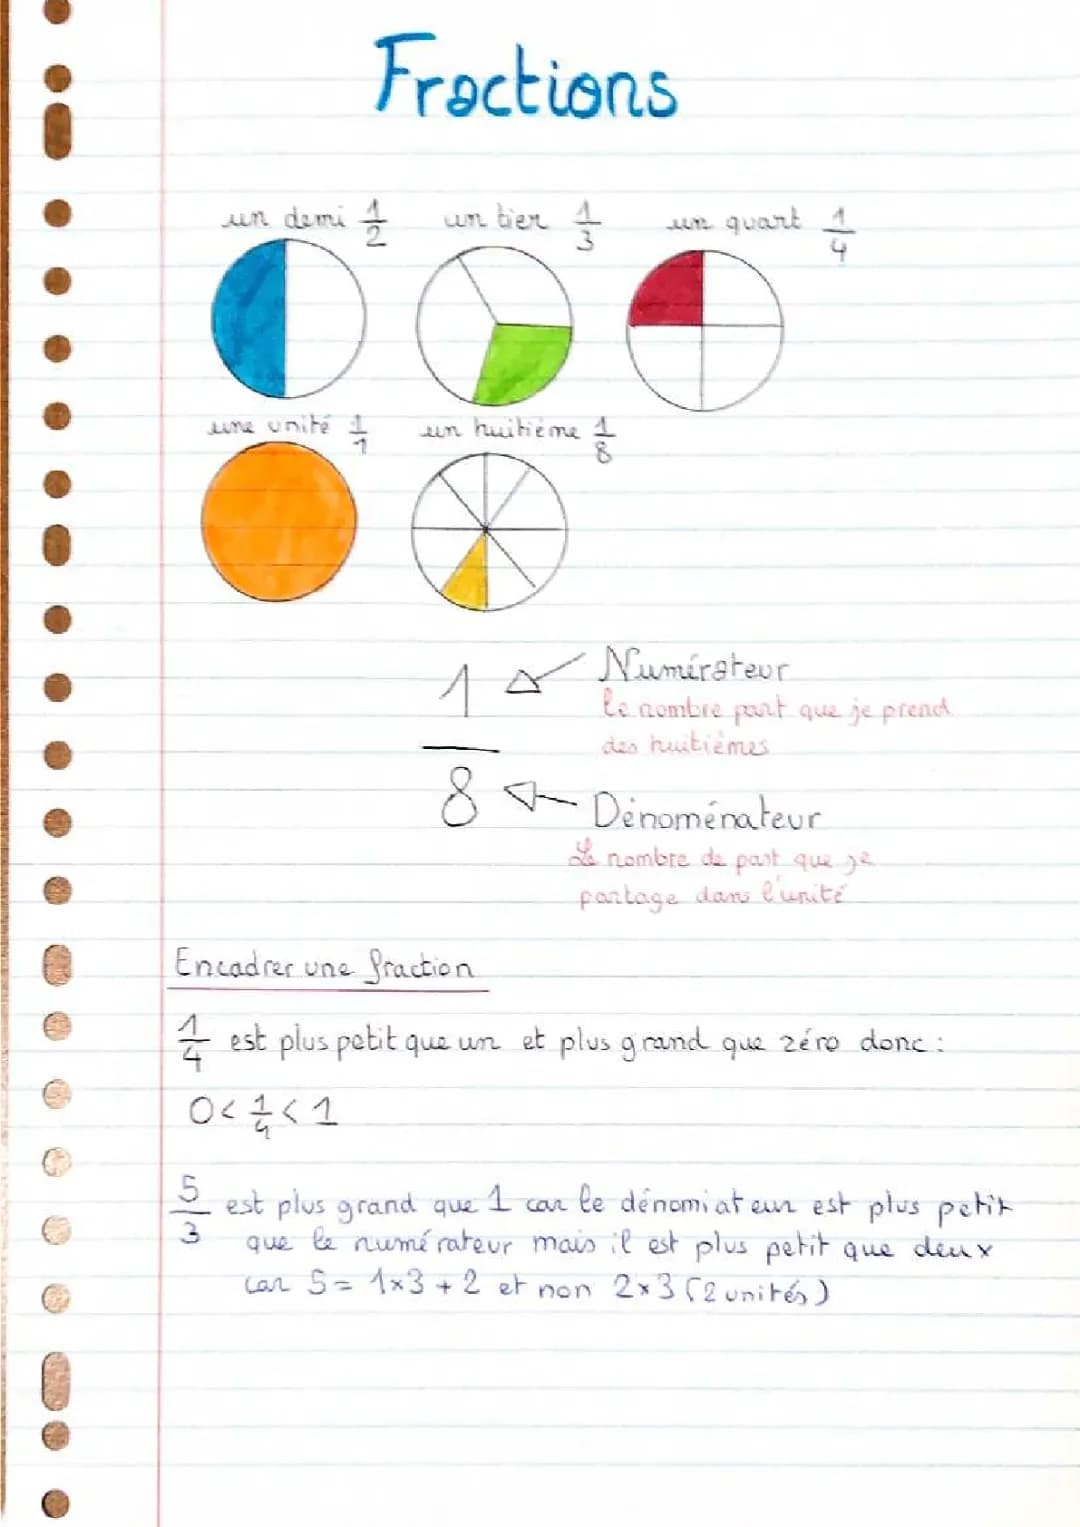 Fractions
un demi 1/2 un tier 1/3 un quart 1/4
une unité 1/1 un huitième 1/8
1 Numérateur
le nombre part que je prend
des huitièmes
8 Dénoménateur
Le nombre de part que je
partage dans l'unité
Encadrer une fraction
1/4 est plus petit que un et plus grand que zéro donc :
0 < 1/4 < 1
5/3 est plus grand que 1 car le dénomiateur est plus petit
que le numérateur mais il est plus petit que deux
car 5 = 1x3 + 2 et non 2x3 (2 unités)